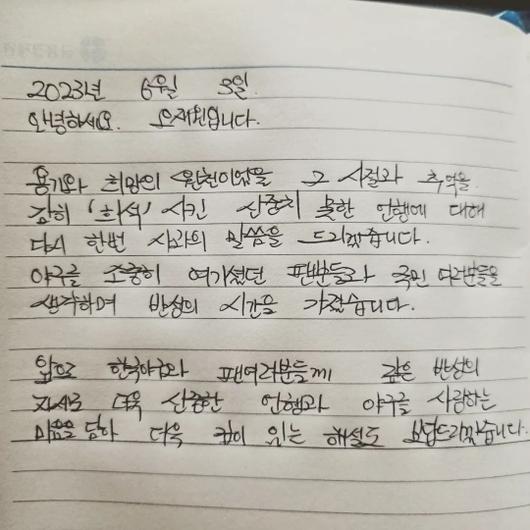 2023년 6월 3일.
안녕하세요. 오재원입니다.
용기와 희망의 원천이었을 그 시절과 추억을
감히 '희석' 시킨 신중치 못한 언행에 대해
다시 한번 사과의 말씀을 드리겠습니다.
야구를 소중히 여기셨던 팬분들과 국민 여러분들을
생각하며 반성의 시간을 가졌습니다.
앞으로 한국야구와 팬여러분들께 깊은 반성의
자세로 더욱 신중한 언행과 야구를 사랑하는
마음을 담아 더욱 깊이 있는 해설로 보답드리겠습니다.